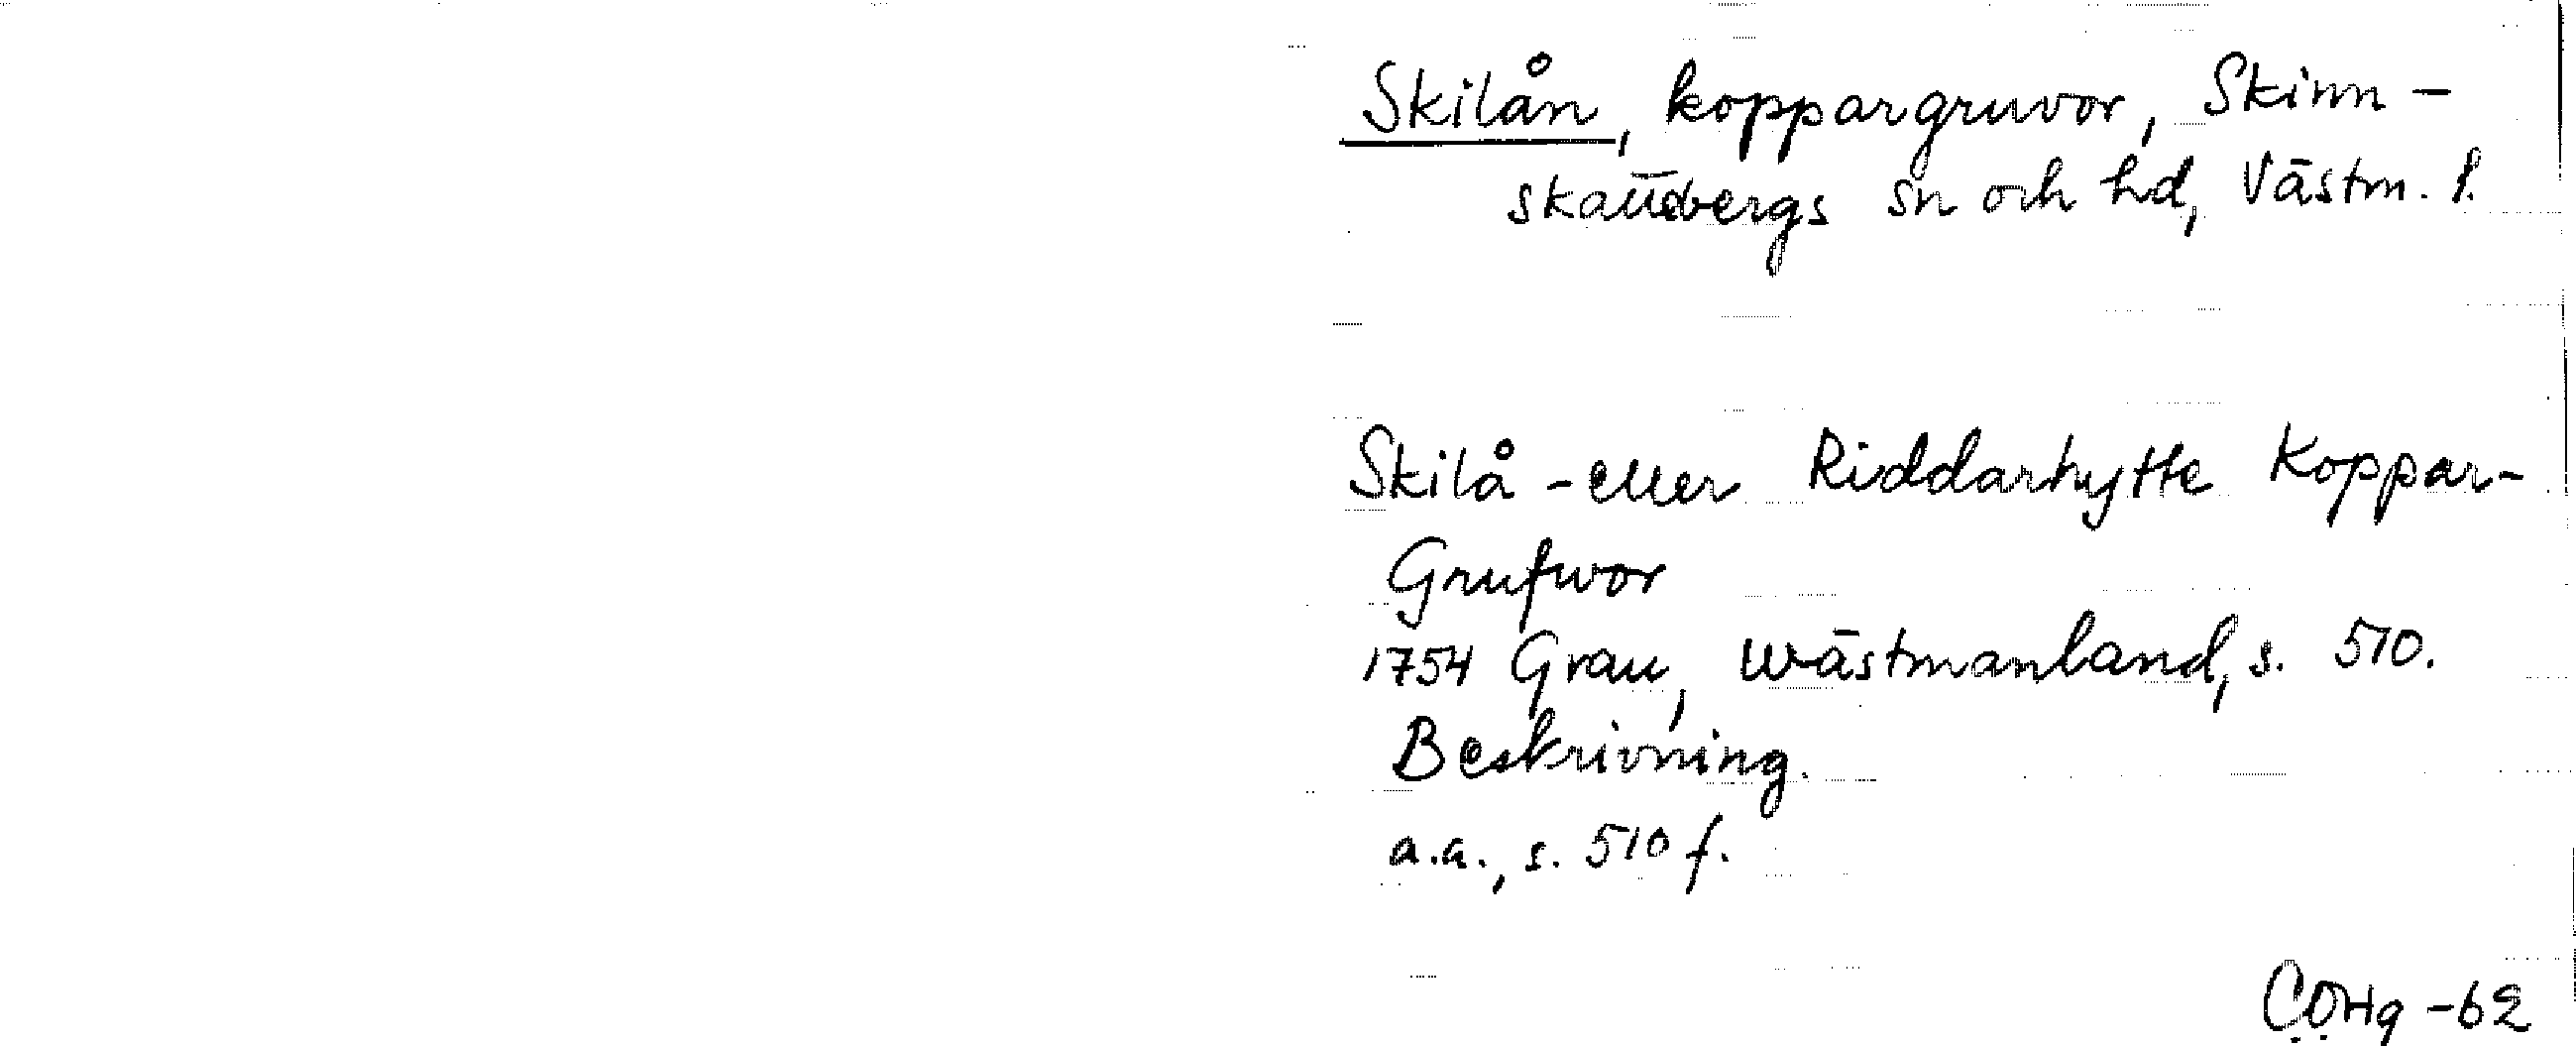 Skilån, koppargruvor, Skinn-
skattebergs sn och hd, Västm. l.
Skilå - eller Riddarhytte Koppar-
Grufwor
1754 Grau, Wästmanland, s. 510.
Beskrivning.
a.a., s. 510 f.
CÖHg -62